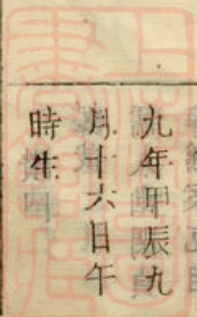 九年甲辰九
月十六日午
時生